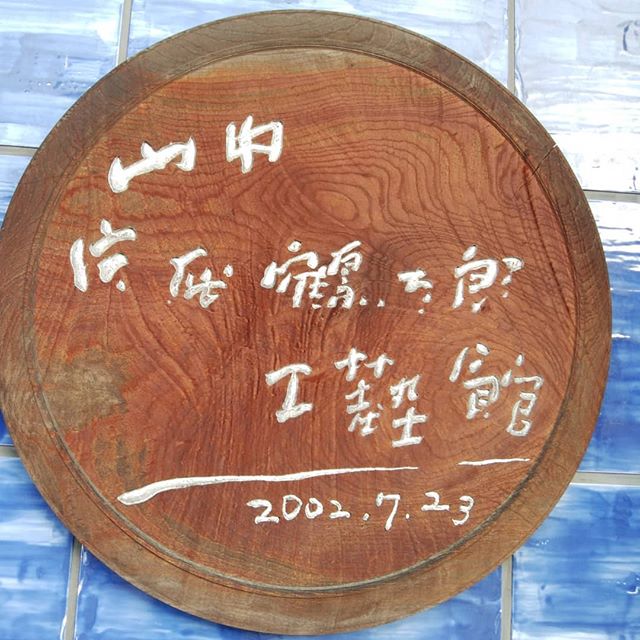 山中
片岡鶴太郎
工藝館
2002.7.23